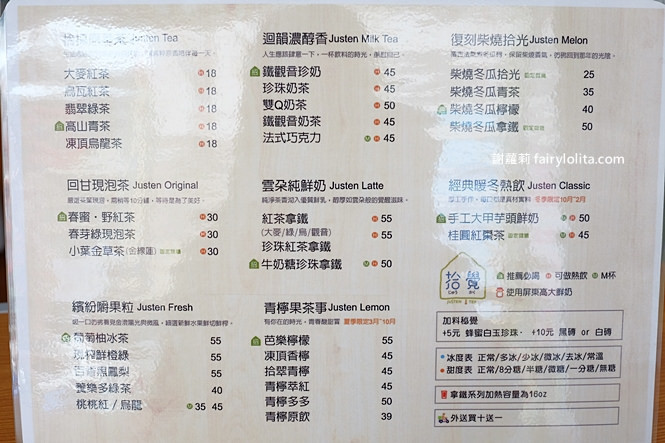 Justen Tea
大麥紅茶 18
烏瓦紅茶 18
翡翠綠茶 18
高山青茶 18
凍頂烏龍茶 18
回甘現泡茶 Justen Original
春蜜·野紅茶 30
春芽綠現泡茶 30
小葉金草茶(金線蓮) 30
繽紛嚼果粒 Justen Fresh
葡萄柚冰茶 55
現榨鮮橙綠 55
鳳梨 55
養樂多綠茶 40
桃桃紅/烏龍 M 35 45
迴韻濃醇香 Justen Milk Tea
鐵觀音珍奶 45
珍珠奶茶 45
雙Q奶茶 50
鐵觀音奶茶 45
法式巧克力 45
雲朵純鮮奶 Justen Latte
紅茶拿鐵 55
(大麥/綠/烏/觀音)
珍珠紅茶拿鐵 55
牛奶糖珍珠拿鐵 50
青檸果茶事 Justen Lemon
夏季限定3月~10月
芭樂檸檬 55
凍頂香檸 45
拾翠青檸 45
青檸萃紅 45
青檸多多 50
青檸原飲 39
復刻柴燒拾光 Justen Melon
柴燒冬瓜拾光 25
柴燒冬瓜青茶 35
柴燒冬瓜檸檬 40
柴燒冬瓜拿鐵 50
謝蘿莉 fairylolita.com
經典暖冬熱飲 Justen Classic
冬季限定10月~2月
手工大甲芋頭鮮奶 50
桂圓紅棗茶 45
拾覺
推薦必喝 H 可做熱飲 M M杯
使用屏東高大鮮奶
加料秘覺
+5元 蜂蜜白玉珍珠· +10元 黑磚 or 白磚
冰度表 正常/多冰/少冰/微冰/去冰/常溫
甜度表 正常/8分糖/半糖/微糖/一分糖/無糖
拿鐵系列加熱容量為16oz
外送買十送一